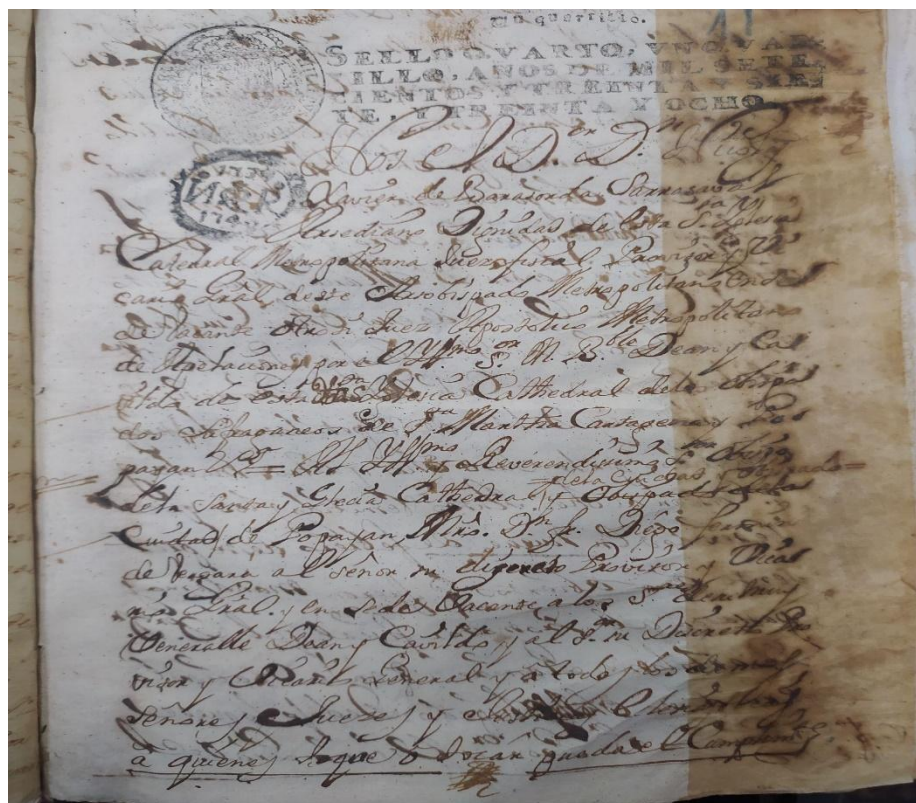 Un quartillo.
SELLO QVARTO, VN QVAR-
TILLO, AÑOS DE MIL SETE-
CIENTOS Y TREINTA Y SIE-
TE, Y TREINTA Y OCHO.
Nos el D.or D.n
Xavier de Barasorda Larrazaval
Arsediano Dignidad de esta S.ta Yglesia
Catedral Metropolitana Juez fiscal, Provisor y Vi
cario Gral, deste Arsobispado Metropolitano en Sede
Vacante Juez Apostolico Metropolitano
de Apelaciones por el Yll.mo S.or M. V.ble Dean y Ca
vildo de esta Yglesia Cathedral delos Obispa
dos Sufraganeos de S.ta Martha Cartagena y Po
payan &.a = Al Yll.mo y Reverendisimo S.or Obispo
dela Santa Yglesia Cathedral y Obispado dela
Ciudad de Popayan, Mro. D.n F. Diego Fermin
de Vergara al Señor su discreto Provisor y Vica
rio Gral. y en Sede Vacante, a los S.res Dean muy
Venerable Dean y Cavildo, y al S.or su Discreto Pro
visor y Vicario General y a todos los demas
Señores Jueses y
à quienes toque ò tocar pueda el Cumplim.to